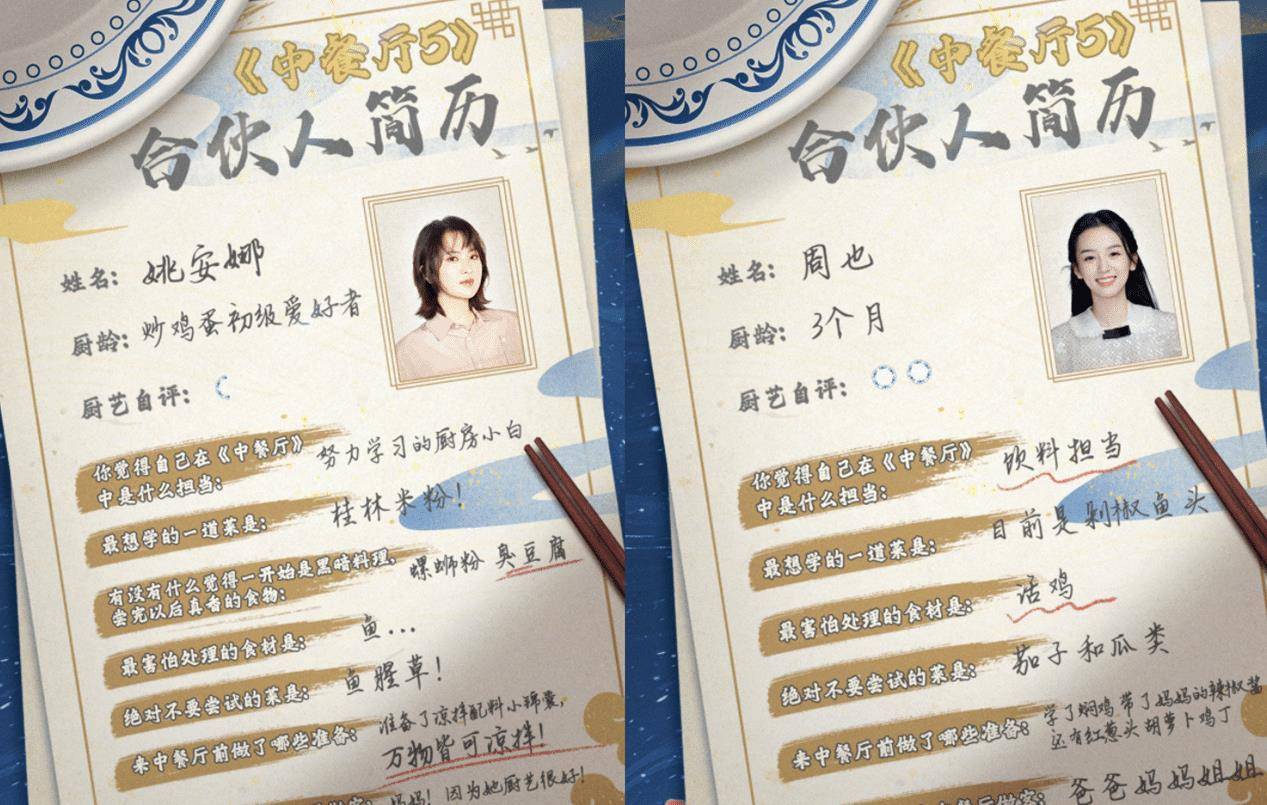 《中餐厅5》
合伙人简历
姓名: 姚安娜
厨龄: 炒鸡蛋初级爱好者
厨艺自评:
你觉得自己在《中餐厅》
中是什么担当: 努力学习的厨房小白
最想学的一道菜是: 桂林米粉!
有没有什么觉得一开始是黑暗料理,
尝完以后真香的食物: 螺蛳粉 臭豆腐
最害怕处理的食材是: 鱼...
绝对不要尝试的菜是: 鱼腥草!
来中餐厅前做了哪些准备: 准备了凉拌配料小锦囊,
万物皆可凉拌!
妈妈! 因为她厨艺很好!
《中餐厅5》
合伙人简历
姓名: 周也
厨龄: 3个月
厨艺自评:
你觉得自己在《中餐厅》
中是什么担当: 饮料担当
最想学的一道菜是: 目前是剁椒鱼头
最害怕处理的食材是: 活鸡
绝对不要尝试的菜是: 茄子和瓜类
来中餐厅前做了哪些准备: 学了焖鸡 带了妈妈的辣椒酱
还有红葱头胡萝卜鸡丁
爸爸妈妈姐姐